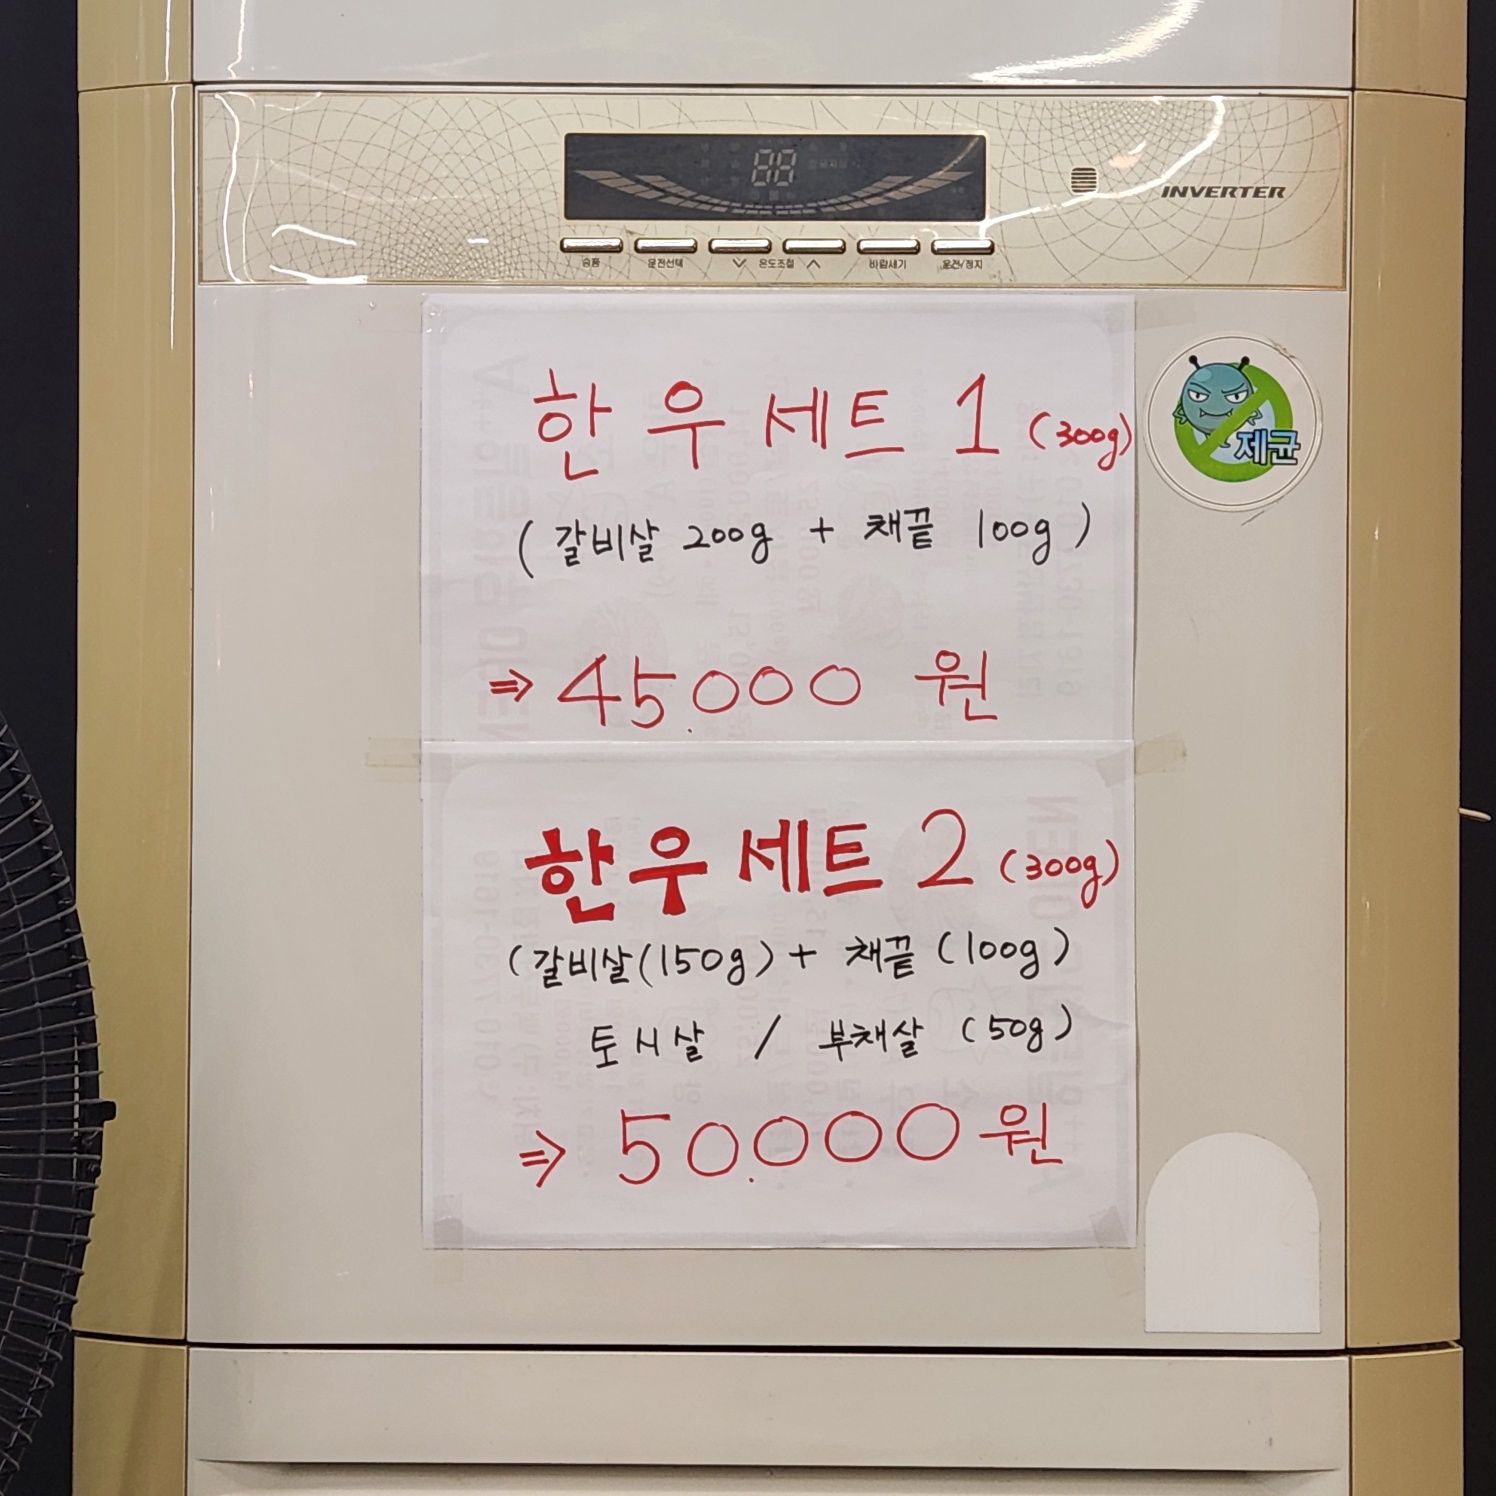 INVERTER
송풍 운전선택 온도조절 바람세기 운전/정지
한우세트 1 (300g)
제균
(갈비살 200g + 채끝 100g)
⇒ 45.000 원
한우세트 2 (300g)
(갈비살(150g) + 채끝 (100g)
토시살 / 부채살 (50g)
⇒ 50.000원